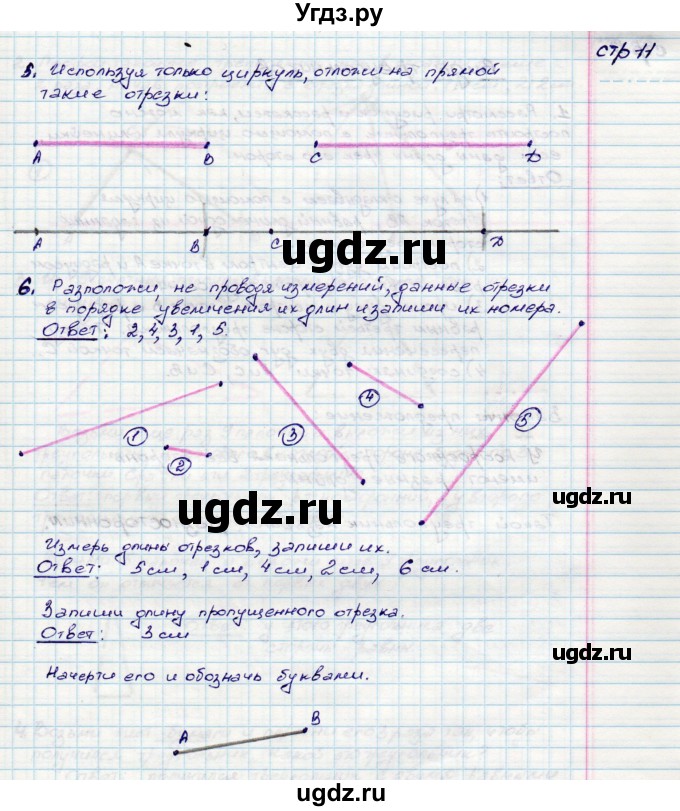 Угдз.ру
стр 11
5. Используя только циркуль, отложи на прямой
такие отрезки:
A B C D
A B C D
ugdz.ru
ugdz.ru
6. Разположи, не проводя измерений, данные отрезки
в порядке увеличения их длин и запиши их номера.
Ответ: 2, 4, 3, 1, 5.
1 2 3 4 5
ugdz.ru
ugdz.ru
Измерь длины отрезков, запиши их.
Ответ: 5 см, 1 см, 4 см, 2 см, 6 см.
Запиши длину пропущенного отрезка.
Ответ: 3 см
ugdz.ru
Начерти его и обозначь буквами.
A B
ugdz.ru